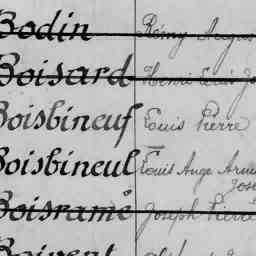 Bodin Rémy Augus
Boisard Henri Louis Jo
Boisbineuf Louis Pierre
Boisbineul Louis Ange Arm
Jose
Boisramé Joseph Pierre
Boivent